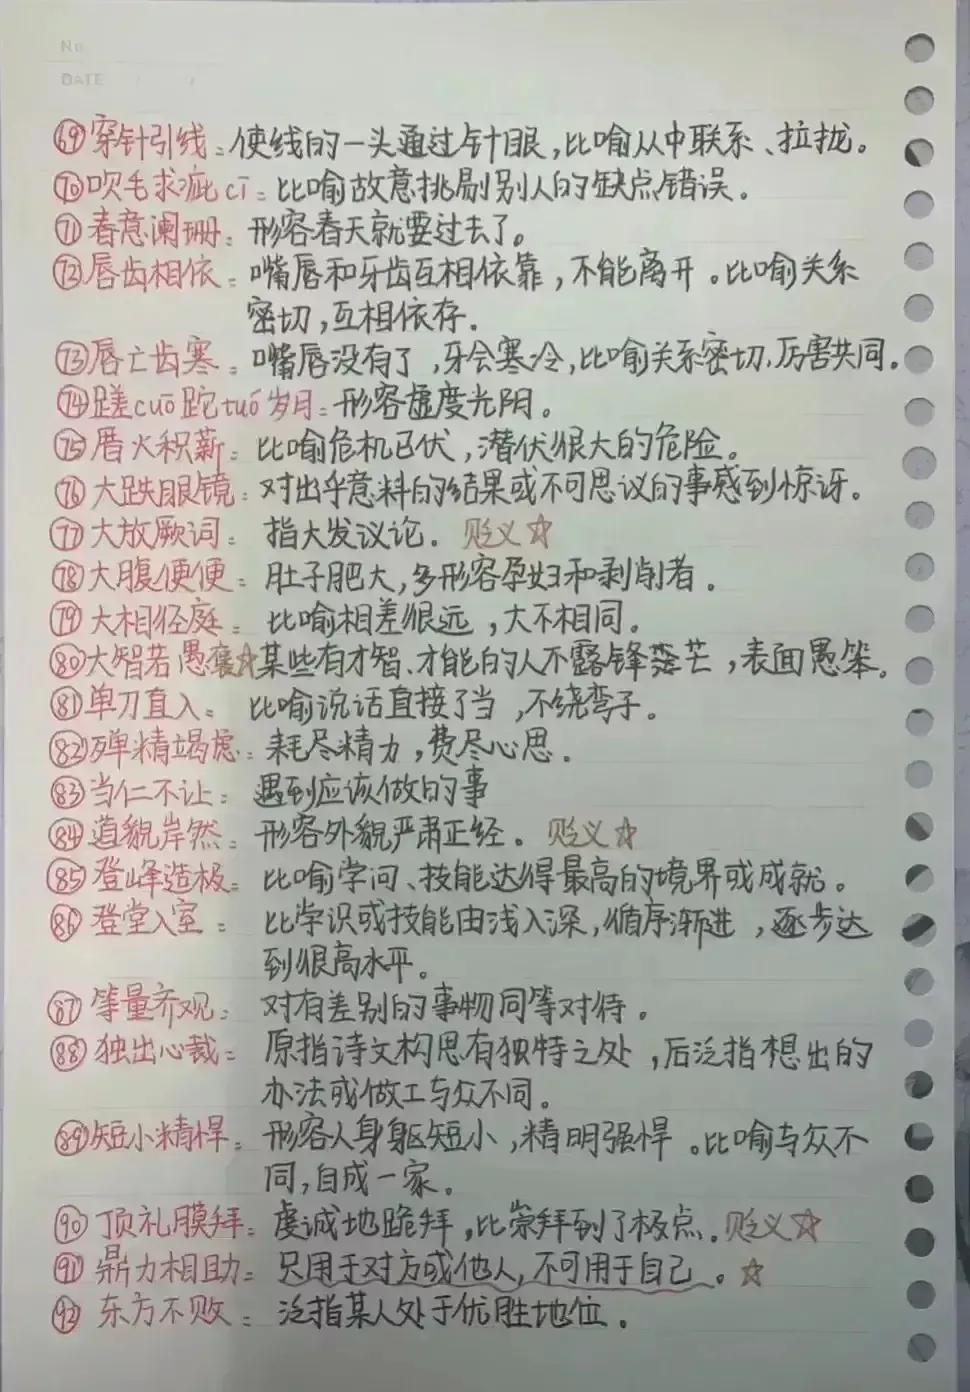 No
DATE / /
69 穿针引线：使线的一头通过针眼，比喻从中联系、拉拢。
70 吹毛求疵cī：比喻故意挑剔别人的缺点错误。
71 春意阑珊：形容春天就要过去了。
72 唇齿相依：嘴唇和牙齿互相依靠，不能离开。比喻关系
密切，互相依存。
73 唇亡齿寒：嘴唇没有了，牙会寒冷，比喻关系密切，厉害共同。
74 蹉cuō跎tuó岁月：形容虚度光阴。
75 厝火积薪：比喻危机已伏，潜伏很大的危险。
76 大跌眼镜：对出乎意料的结果或不可思议的事感到惊讶。
77 大放厥词：指大发议论。贬义☆
78 大腹便便：肚子肥大，多形容孕妇和剥削者。
79 大相径庭：比喻相差很远，大不相同。
80 大智若愚褒☆某些有才智、才能的人不露锋芒，表面愚笨。
81 单刀直入：比喻说话直接了当，不绕弯子。
82 殚精竭虑：耗尽精力，费尽心思。
83 当仁不让：遇到应该做的事
84 道貌岸然：形容外貌严肃正经。贬义☆
85 登峰造极：比喻学问、技能达得最高的境界或成就。
86 登堂入室：比学识或技能由浅入深，循序渐进，逐步达
到很高水平。
87 等量齐观：对有差别的事物同等对待。
88 独出心裁：原指诗文构思有独特之处，后泛指想出的
办法或做工与众不同。
89 短小精悍：形容人身躯短小，精明强悍。比喻与众不
同，自成一家。
90 顶礼膜拜：虔诚地跪拜，比崇拜到了极点。贬义☆
91 鼎力相助：只用于对方或他人，不可用于自己。☆
92 东方不败：泛指某人处于优胜地位。